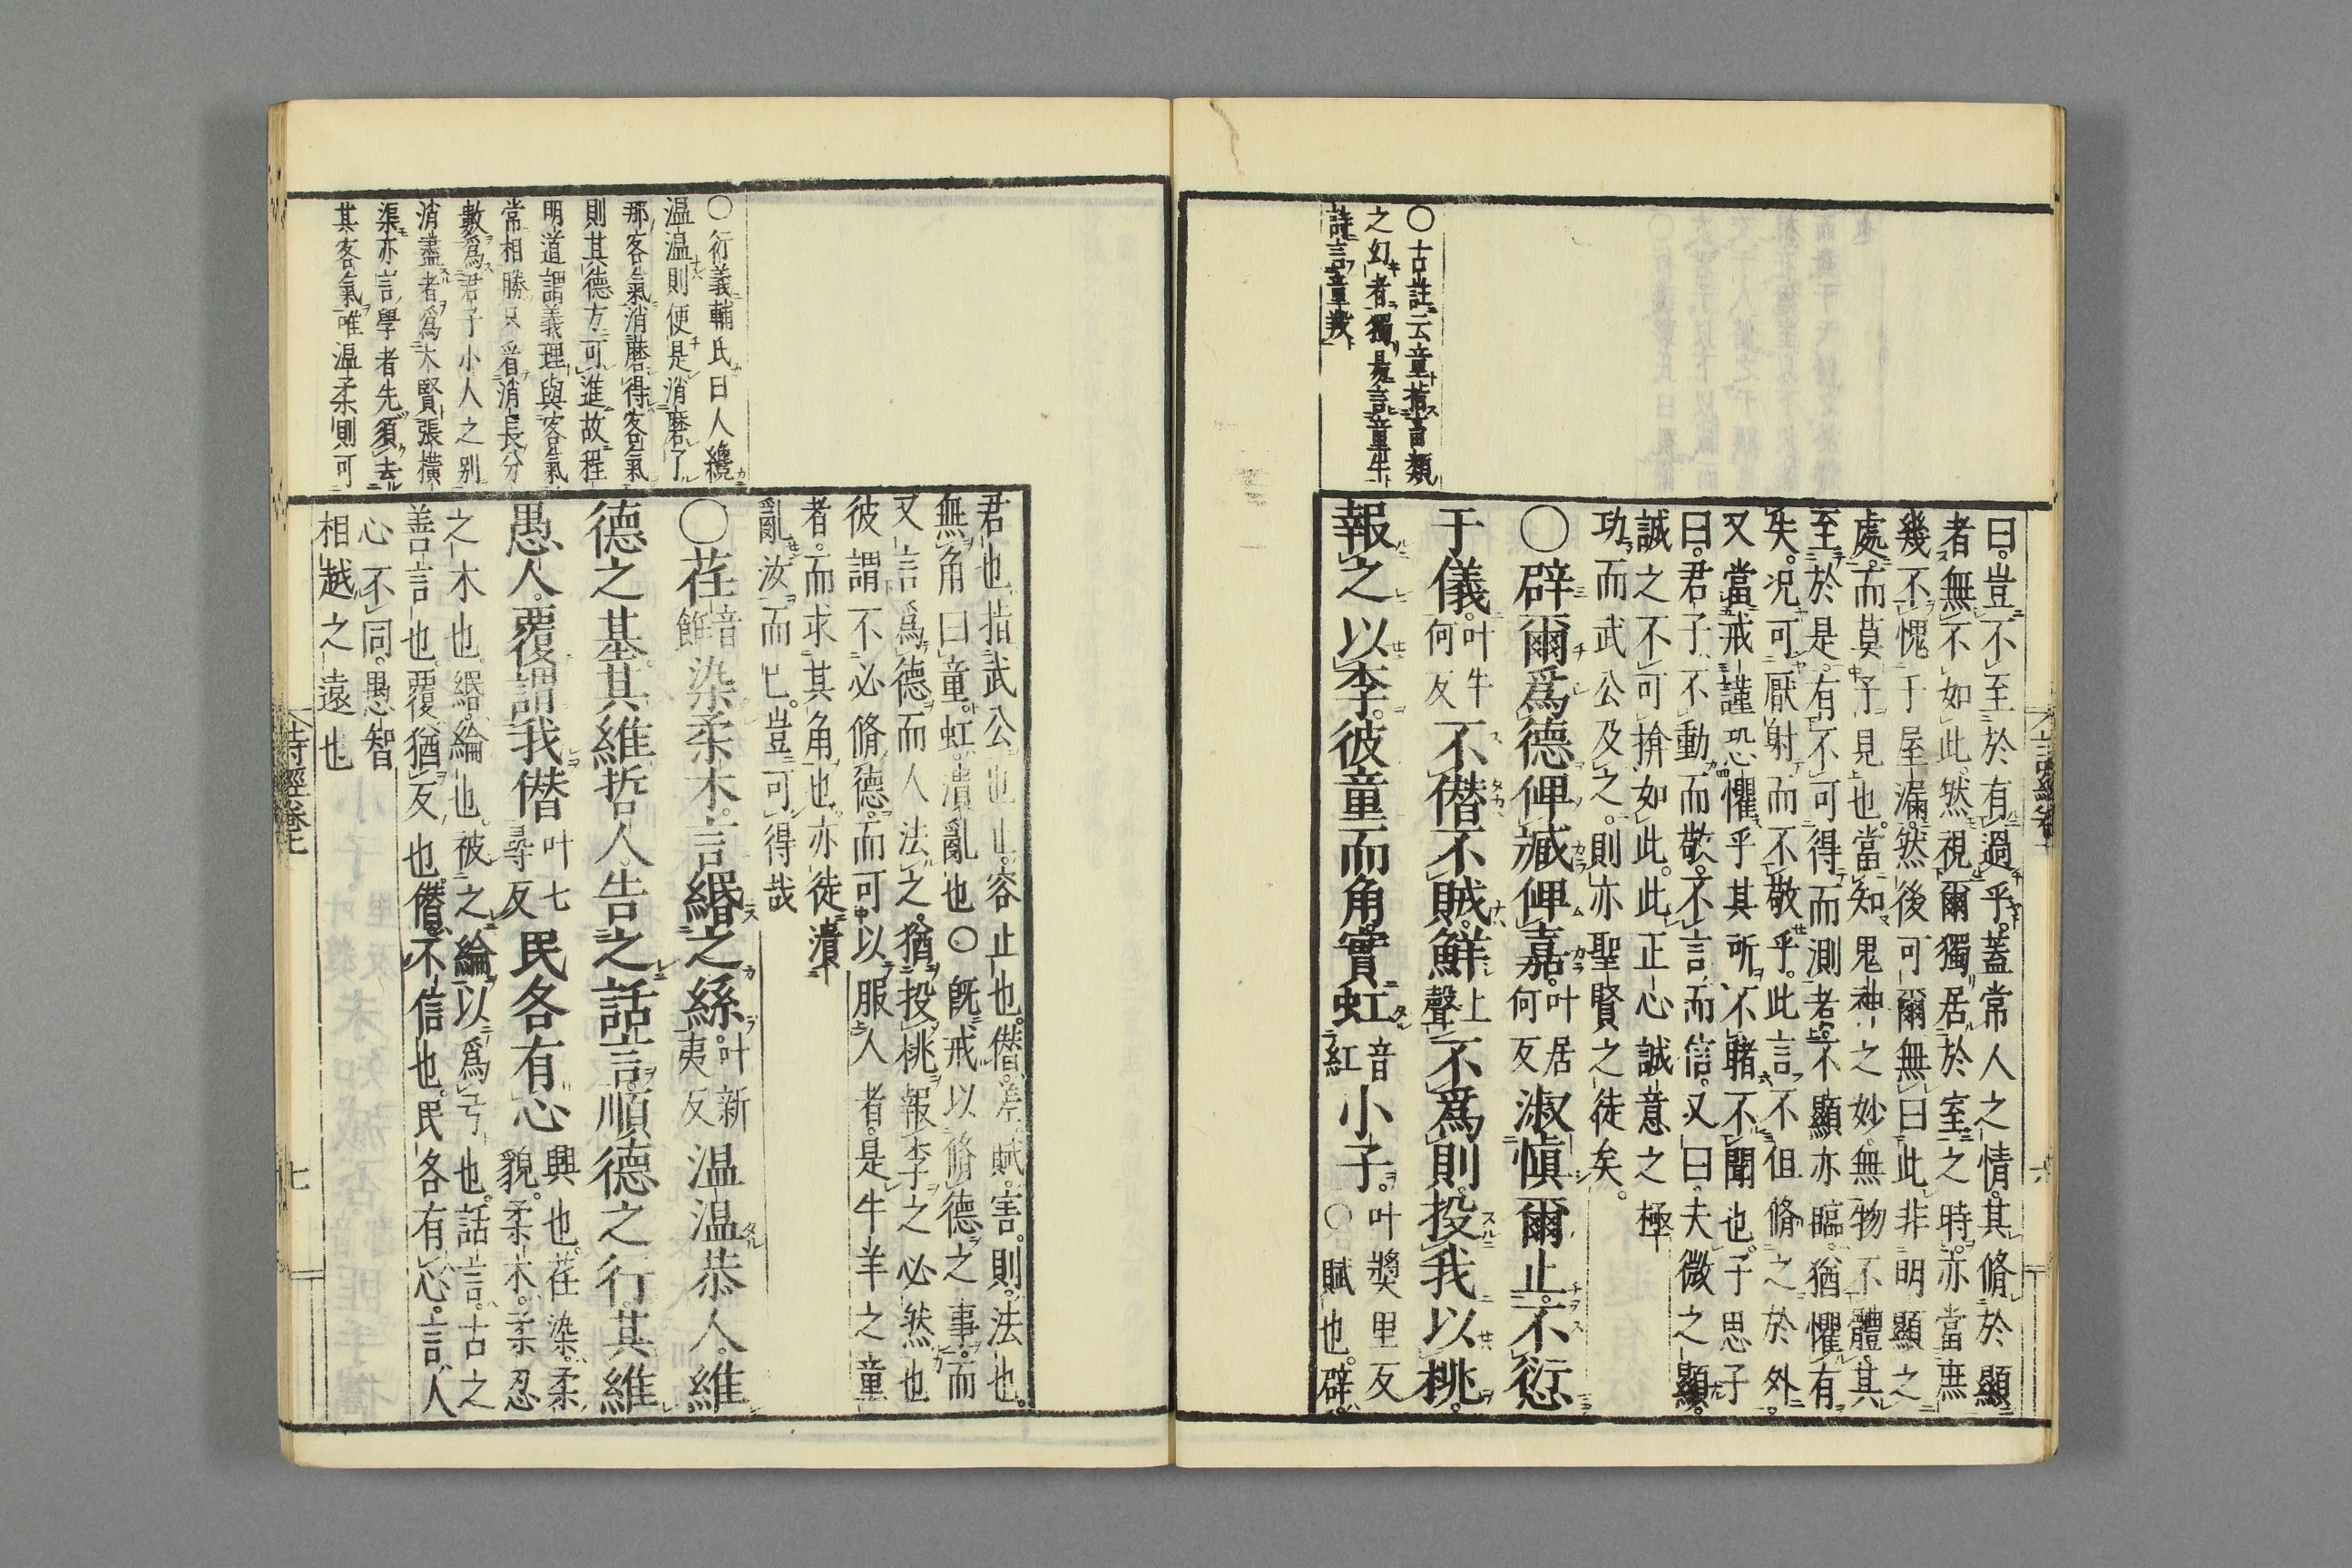 曰。豈不至於有過乎。蓋常人之情。其脩於顯
者無不如此。然視爾獨居於室之時。亦當無
幾不愧于屋漏。然後可爾無曰此非明顯之
處。而莫予見也。當知鬼神之妙。無物不體。其
至於是。有不可得而測者。不顯亦臨。猶懼有
失。況可厭射而不敬乎。此言不但脩之於外。
又當戒謹恐懼乎其所不睹不聞也。子思子
曰。君子不動而敬。不言而信。又曰。夫微之顯。
誠之不可揜如此。此正心誠意之極
功。而武公及之。則亦聖賢之徒矣。
〇辟爾爲德俾臧俾嘉。叶居何反淑愼爾止。不愆
于儀。叶牛何反不僭不賊。鮮上聲不爲則。投我以桃。
報之以李。彼童而角。實虹音紅小子。叶獎里反〇賦也。辟。
〇古註云童指畜類
之幻者獨是言童牛
詩言童羖
君也。指武公也。止。容止也。僭。差。賊。害。則。法也。
無角曰童。虹。潰亂也〇既戒以脩德之事。而
又言爲德而人法之。猶投桃報李之必然也
彼謂不必脩德。而可以服人者。是牛羊之童
者。而求其角也。亦徒潰
亂汝而已。豈可得哉
〇荏音飪染柔木。言緡之絲。叶新夷反温温恭人。維
德之基。其維哲人。告之話言。順德之行。其維
愚人。覆謂我僭叶七尋反民各有心興也。荏染。柔貌。柔木。柔忍
之木也。緡。綸也。被之綸以爲弓也。話言。古之
善言也。覆。猶反也。僭。不信也。民各有心。言人
心不同。愚智
相越之遠也
〇衍義輔氏曰人纔
温温則便是消磨了
那客氣消磨得客氣
則其德方可進故程
明道謂義理與客氣
常相勝只看消長分
數爲君子小人之別
消盡者爲大賢張橫
渠亦言學者先須去
其客氣唯温柔則可
詩經卷七
七